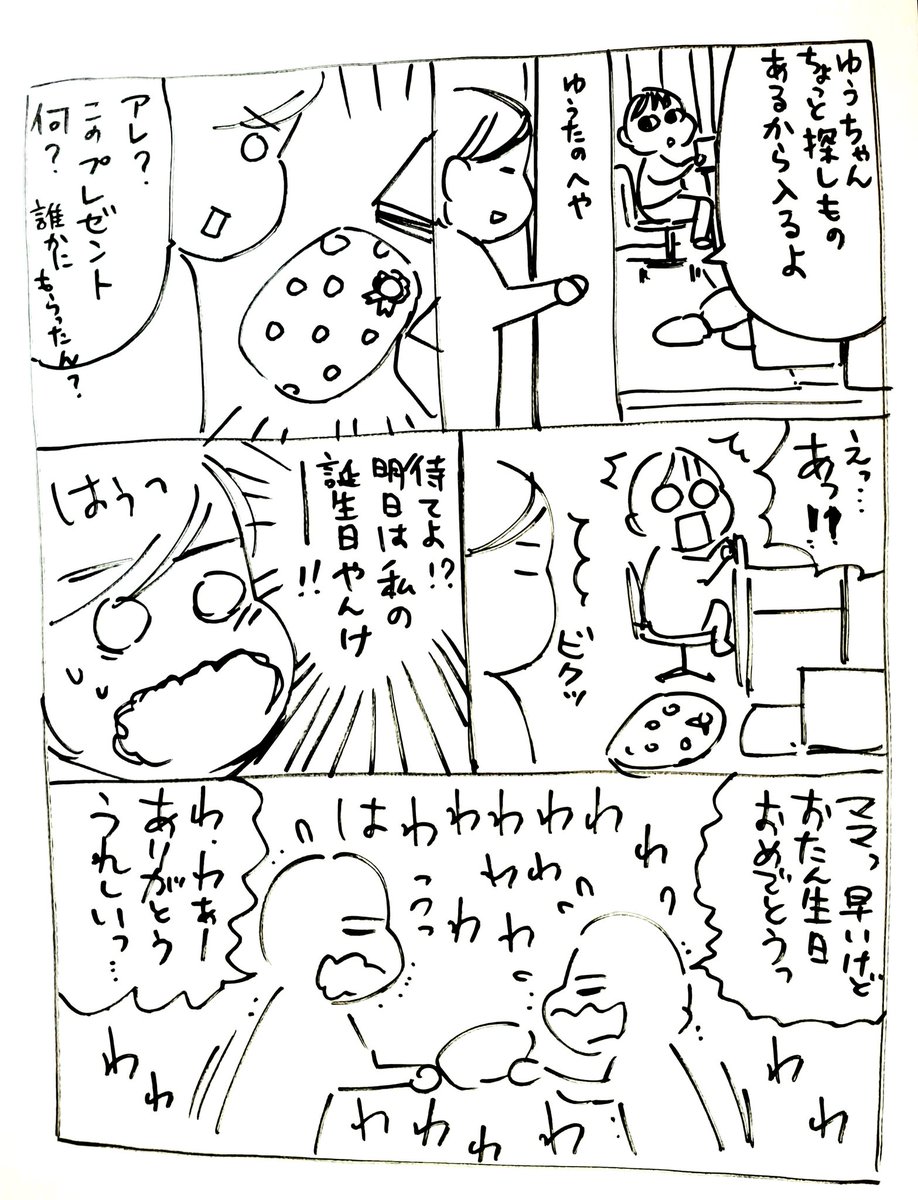 ゆうちゃん
ちょっと探しもの
あるから入るよ
ゆうたのへや
アレ?
このプレゼント
何? 誰かにもらったん?
えっ…
あっ!?
ビクッ
待てよ!?
明日は私の
誕生日やんけ
ー!!
はうっ
ママっ 早いけど
おたん生日
おめでとうっ
はわわわわわ
わ
わわわ
うっ
わわ
わ・わあー
ありがとう
うれしいっ…
わ
わ
わ
わ
わわわわ